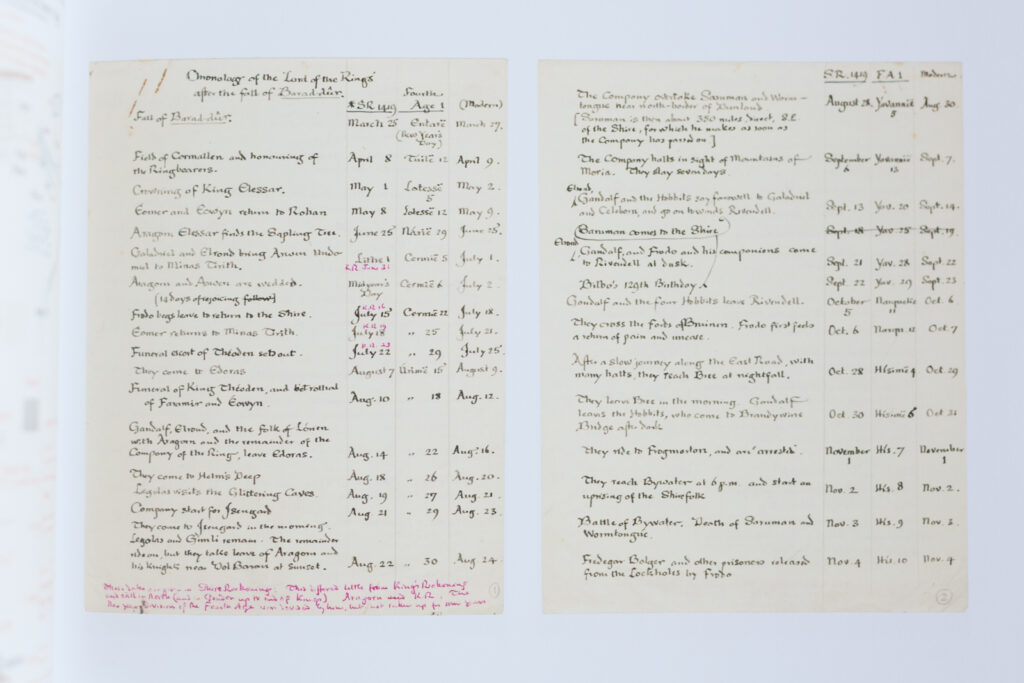 Chronology of the Lord of the Rings
after the fall of Barad-dûr.
Fourth
*SR 1419 Age 1 (Modern)
Fall of Barad-dûr. March 25 Entarë March 27.
(New Year's
Day)
Field of Cormallen and honouring of April 8 Tuilë 12 April 9.
the Ringbearers.
Crowning of King Elessar. May 1 Lotessë May 2.
5
Eomer and Eowyn return to Rohan May 8 Lotessë 12 May 9.
Aragorn Elessar finds the Sapling Tree. June 25 Nárië 29 June 25.
Galadriel and Elrond bring Arwen Undo- Lithe 1 Cermië 5 July 1.
miel to Minas Tirith. K.R. June 31
Aragorn and Arwen are wedded. Midyear's Cermië 6 July 2.
(14 days of rejoicing follow) Day
K.R. 16
Frodo begs leave to return to the Shire. July 15 Cermië 22 July 18.
K.R. 19
Eomer returns to Minas Tirith July 18 " 25 July 21.
K.R. 23
Funeral escort of Théoden sets out. July 22 " 29 July 25.
They come to Edoras August 7 Urimë 15 August 9.
Funeral of King Théoden, and betrothal Aug. 10 " 18 Aug. 12.
of Faramir and Eowyn.
Gandalf, Elrond, and the folk of Lórien
with Aragorn and the remainder of the
Company of the Ring, leave Edoras. Aug. 14 " 22 Aug. 16.
They come to Helm's Deep Aug. 18 " 26 Aug. 20.
Legolas visits the Glittering Caves. Aug. 19 " 27 Aug. 21.
Company start for Isengard Aug. 21 " 29 Aug. 23.
They come to Isengard in the morning.
Legolas and Gimli remain. The remainder
ride on, but they take leave of Aragorn and
his knights near Dol Baran at sunset. Aug. 22 " 30 Aug. 24
Shire Reckoning. This differed little from King's Reckoning
Aragorn used K.R. The
of the Fourth Age was devised by him, but not taken up for some years
1
S.R. 1419 F.A 1 Modern
The Company overtake Saruman and Worm- August 28. Yavannië Aug. 30
tongue near north-border of Dunland 5
[Saruman is then about 350 miles direct, S.E.
of the Shire, for which he makes as soon as
the Company has parted on]
The Company halts in sight of Mountains of September Yavannië Sept. 7.
Moria. They stay seven days. 6 13
Elrond,
Gandalf and the Hobbits say farewell to Galadriel
and Celeborn, and go on towards Rivendell. Sept. 13 Yav. 20 Sept. 14.
Saruman comes to the Shire Sept. 18 Yav. 25 Sept. 19
Elrond
Gandalf, and Frodo and his companions come
to Rivendell at dusk. Sept. 21 Yav. 28 Sept. 22
Bilbo's 129th Birthday. Sept. 22 Yav. 29 Sept. 23
Gandalf and the four Hobbits leave Rivendell. October Narquelië Oct. 6
5
They cross the Fords of Bruinen. Frodo first feels Oct. 6 Narqu. 12 Oct. 7
a return of pain and unease.
After a slow journey along the East Road, with
many halts, they reach Bree at nightfall. Oct. 28 Hísimë 4 Oct. 29
They leave Bree in the morning. Gandalf
leaves the Hobbits, who come to Brandywine Oct. 30 Hísimë 6 Oct. 31
Bridge after dark
They ride to Frogmorton, and are 'arrested'. November His. 7 November
1 1
They reach Bywater at 6 p.m. and start an Nov. 2 His. 8 Nov. 2.
uprising of the Shirefolk
Battle of Bywater. Death of Saruman and Nov. 3 His. 9 Nov. 3.
Wormtongue.
Fredegar Bolger and other prisoners released Nov. 4 His. 10 Nov. 4
from the Lockholes by Frodo
2